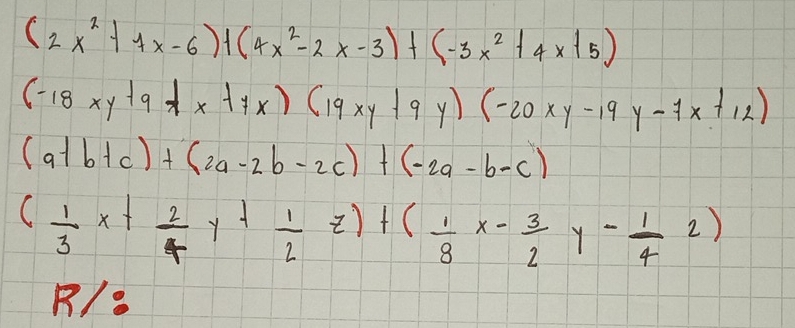 (2x² + 7x - 6) + (4x² - 2x - 3) + (-3x² + 4x + 5)
(-18xy + 9 + x + 7x) (19xy + 9y) (-20xy - 19y - 7x + 12)
(a + b + c) + (2a - 2b - 2c) + (-2a - b - c)
(1/3 x + 2/4 y + 1/2 z) + (1/8 x - 3/2 y - 1/4 2)
R/: